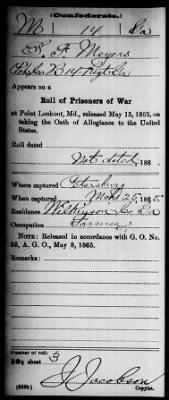 (Confederate.)
M 14 Ga
S F Meyers
B, 14 Regt Ga
Appears on a
Roll of Prisoners of War
at Point Lookout, Md., released May 15, 1865, on
taking the Oath of Allegiance to the United
States.
Roll dated
Not dated, 186 .
Where captured Petersburg
When captured Mar 25, 1865.
Residence Wilkinson Co Ga
Occupation Farmer
NOTE: Released in accordance with G. O. No.
85, A. G. O., May 8, 1865.
Remarks:
Number of roll:
sheet
J. Jacobson
Copyist.